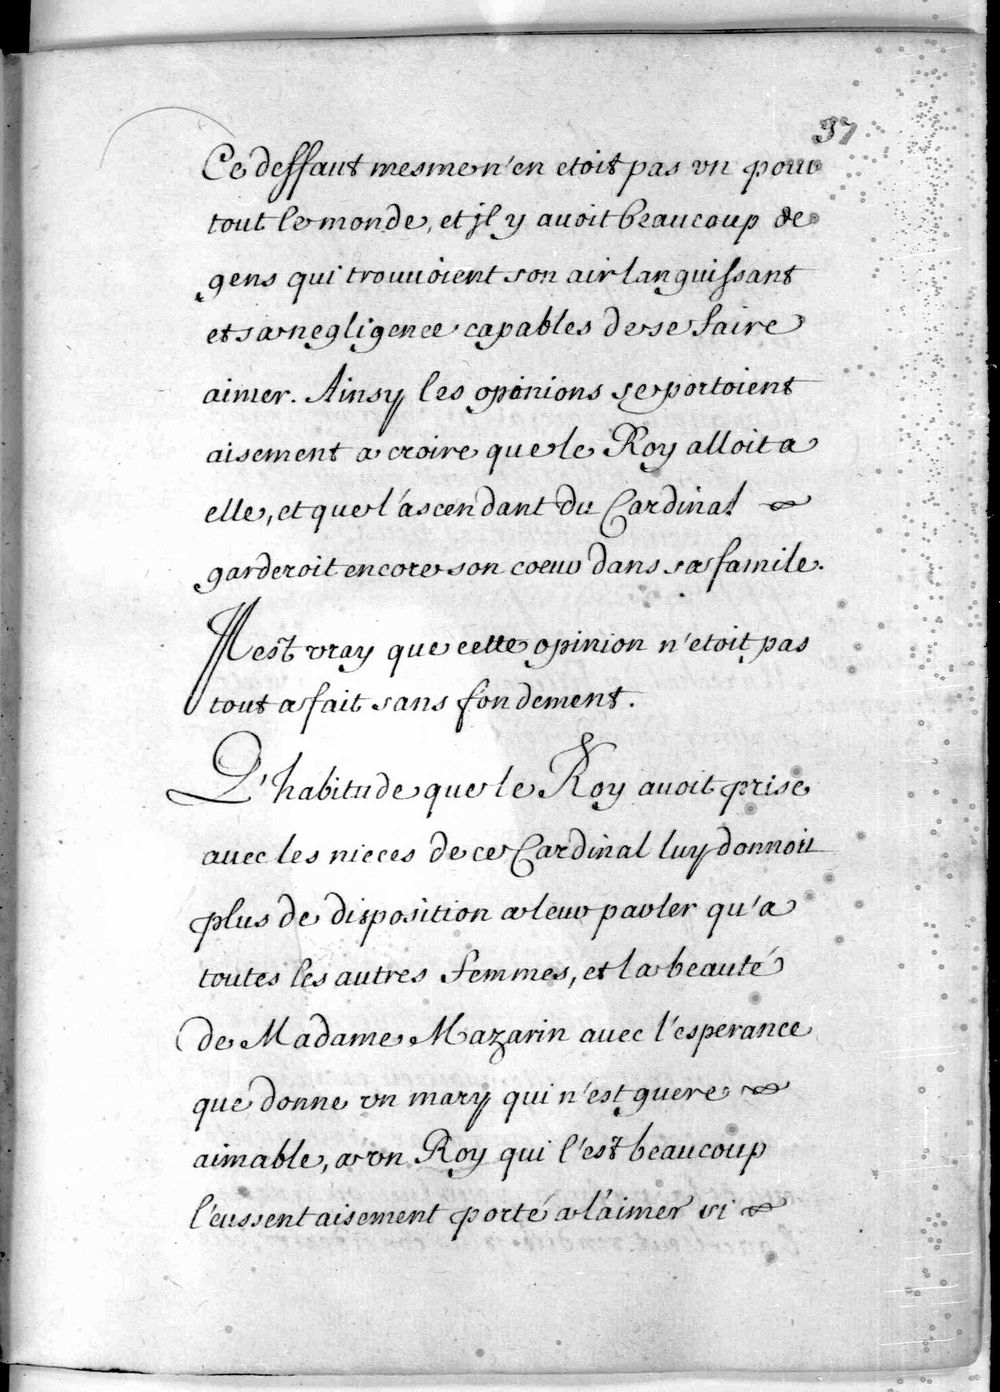 37
Ce deffaut mesme n'en etoit pas vn pour
tout le monde, et jl y auoit beaucoup de
gens qui trouuoient son air languissant
et sa negligence capables de se faire
aimer. Ainsy les opinions se portoient
aisement a croire que le Roy alloit a
elle, et que l'ascendant du Cardinal
garderoit encore son coeur dans sa famile.
Il est vray que cette opinion n'etoit pas
tout a fait sans fondement.
L'habitude que le Roy auoit prise
auec les nieces de ce Cardinal luy donnoit
plus de disposition a leur parler qu'a
toutes les autres femmes, et la beauté
de Madame Mazarin auec l'esperance
que donne vn mary qui n'est guere
aimable, a vn Roy qui l'est beaucoup
l'eussent aisement porté a l'aimer si